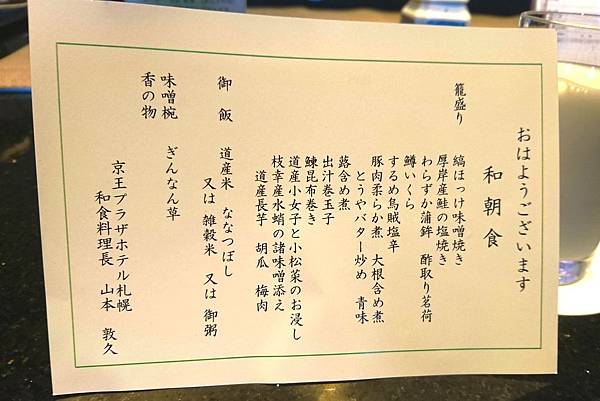 おはようございます
和朝食
籠盛り
縞ほっけ味噌焼き
厚岸産鮭の塩焼き
わらずか蒲鉾 酢取り茗荷
鱒いくら
するめ烏賊塩辛
豚肉柔らか煮 大根含め煮
とうやバター炒め 青味
蕗含め煮
出汁巻玉子
鰊昆布巻き
道産小女子と小松菜のお浸し
枝幸産水蛸の諸味噌添え
道産長芋 胡瓜 梅肉
御飯 道産米 ななつぼし
又は 雑穀米 又は 御粥
味噌椀 ぎんなん草
香の物
京王プラザホテル札幌
和食料理長 山本 敦久